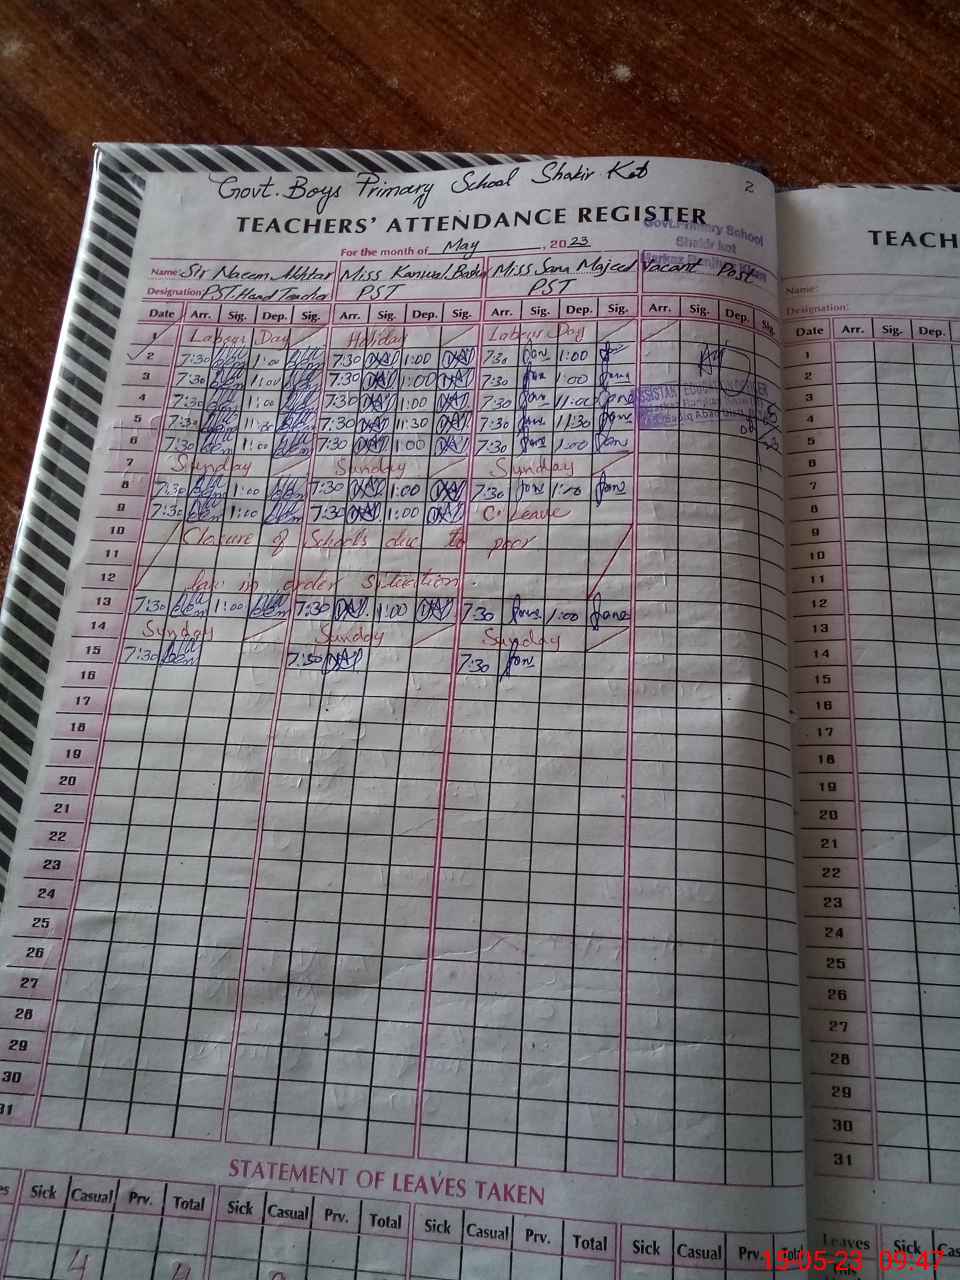 Govt. Boys Primary School Shakir Kot
2
TEACHERS' ATTENDANCE REGISTER
Govt. Primary School
Shakir kot
For the month of May, 2023
Name: Sir Naeem Akhtar Miss Kanwal Bashir Miss Sana Majeed Vacant Post
Designation: PST. Head Teacher PST PST
Date Arr. Sig. Dep. Sig. Arr. Sig. Dep. Sig. Arr. Sig. Dep. Sig. Arr. Sig. Dep. Sig.
1 Labour Day Holiday Labour Day
2 7:30 1:00 7:30 1:00 7:30 1:00
3 7:30 1:00 7:30 1:00 7:30 1:00
4 7:30 1:00 7:30 1:00 7:30 1:00
5 7:30 7:30 11:30 7:30 11:30
6 7:30 1:00 7:30 1:00 7:30 1:00
7 Sunday Sunday Sunday
8 7:30 1:00 7:30 1:00 7:30
9 7:30 1:00 7:30 1:00 C. Leave
10 Closure of Schools due to poor
11
12 law in order situation.
13 7:30 1:00 7:30 1:00 7:30 1:00
14 Sunday Sunday Sunday
15 7:30 7:30 7:30
16
17
18
19
20
21
22
23
24
25
26
27
28
29
30
31
STATEMENT OF LEAVES TAKEN
Sick Casual Prv. Total Sick Casual Prv. Total Sick Casual Prv. Total Sick Casual Prv. Total
4 4
TEACH
Name:
Designation:
Date Arr. Sig. Dep.
1
2
3
4
5
6
7
8
9
10
11
12
13
14
15
16
17
18
19
20
21
22
23
24
25
26
27
28
29
30
31
Leaves Sick Cas
15-05-23 09:47